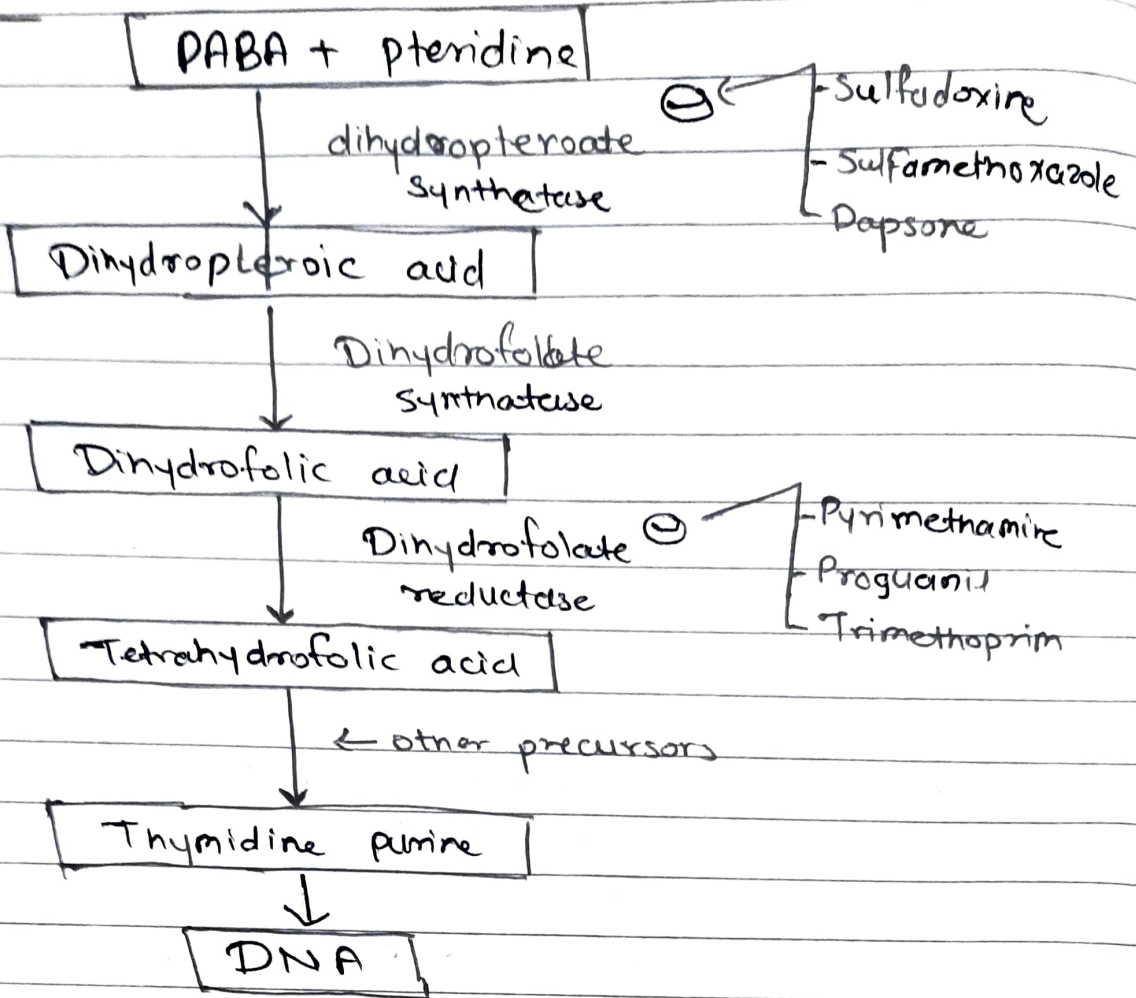 PABA + pteridine
⊖
- Sulfadoxine
dihydropteroate
synthatase
- Sulfamethoxazole
- Dapsone
Dihydropteroic acid
Dihydrofolate
synthatase
Dihydrofolic acid
Dihydrofolate ⊖
reductase
- Pyrimethamine
- Proguanil
- Trimethoprim
Tetrahydrofolic acid
← other precursors
Thymidine purine
DNA